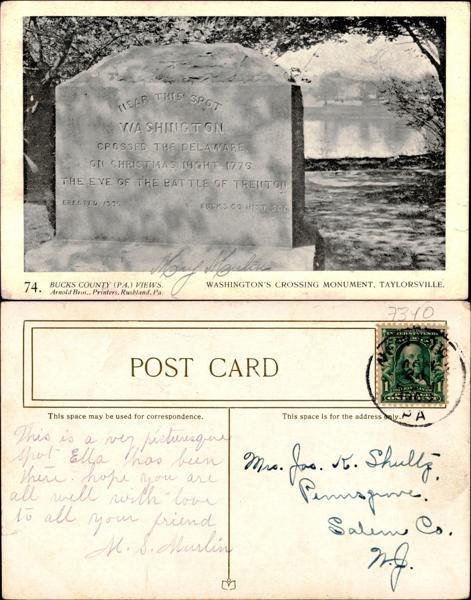 NEAR THIS SPOT
WASHINGTON
CROSSED THE DELAWARE
ON CHRISTMAS NIGHT 1776
THE EVE OF THE BATTLE OF TRENTON
ERECTED 1895 BUCKS CO HIST. SOC
74. BUCKS COUNTY (PA.) VIEWS.
Arnold Bros., Printers, Rushland, Pa.
WASHINGTON'S CROSSING MONUMENT, TAYLORSVILLE.
7340
POST CARD
1
PA
This space may be used for correspondence.
This space is for the address only.
This is a very picturesque
spot Ella has been
there. hope you are
all well with love
to all your friend
M. S. Murlin
Mrs. Jas. K. Shultz,
Pennsgrove,
Salem Co.
N.J.